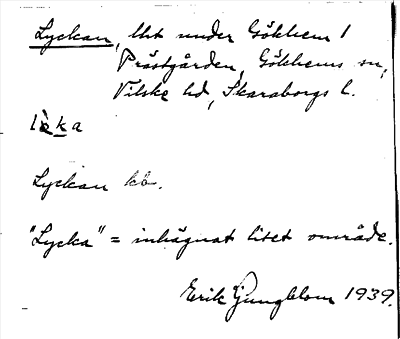 Lyckan, lht under Gökhem 1
Prästgården, Gökhems sn,
Vilske hd, Skaraborgs l.
Lyckan kb.
"Lycka" = inhägnat litet område.
Erik Ljungblom 1939.